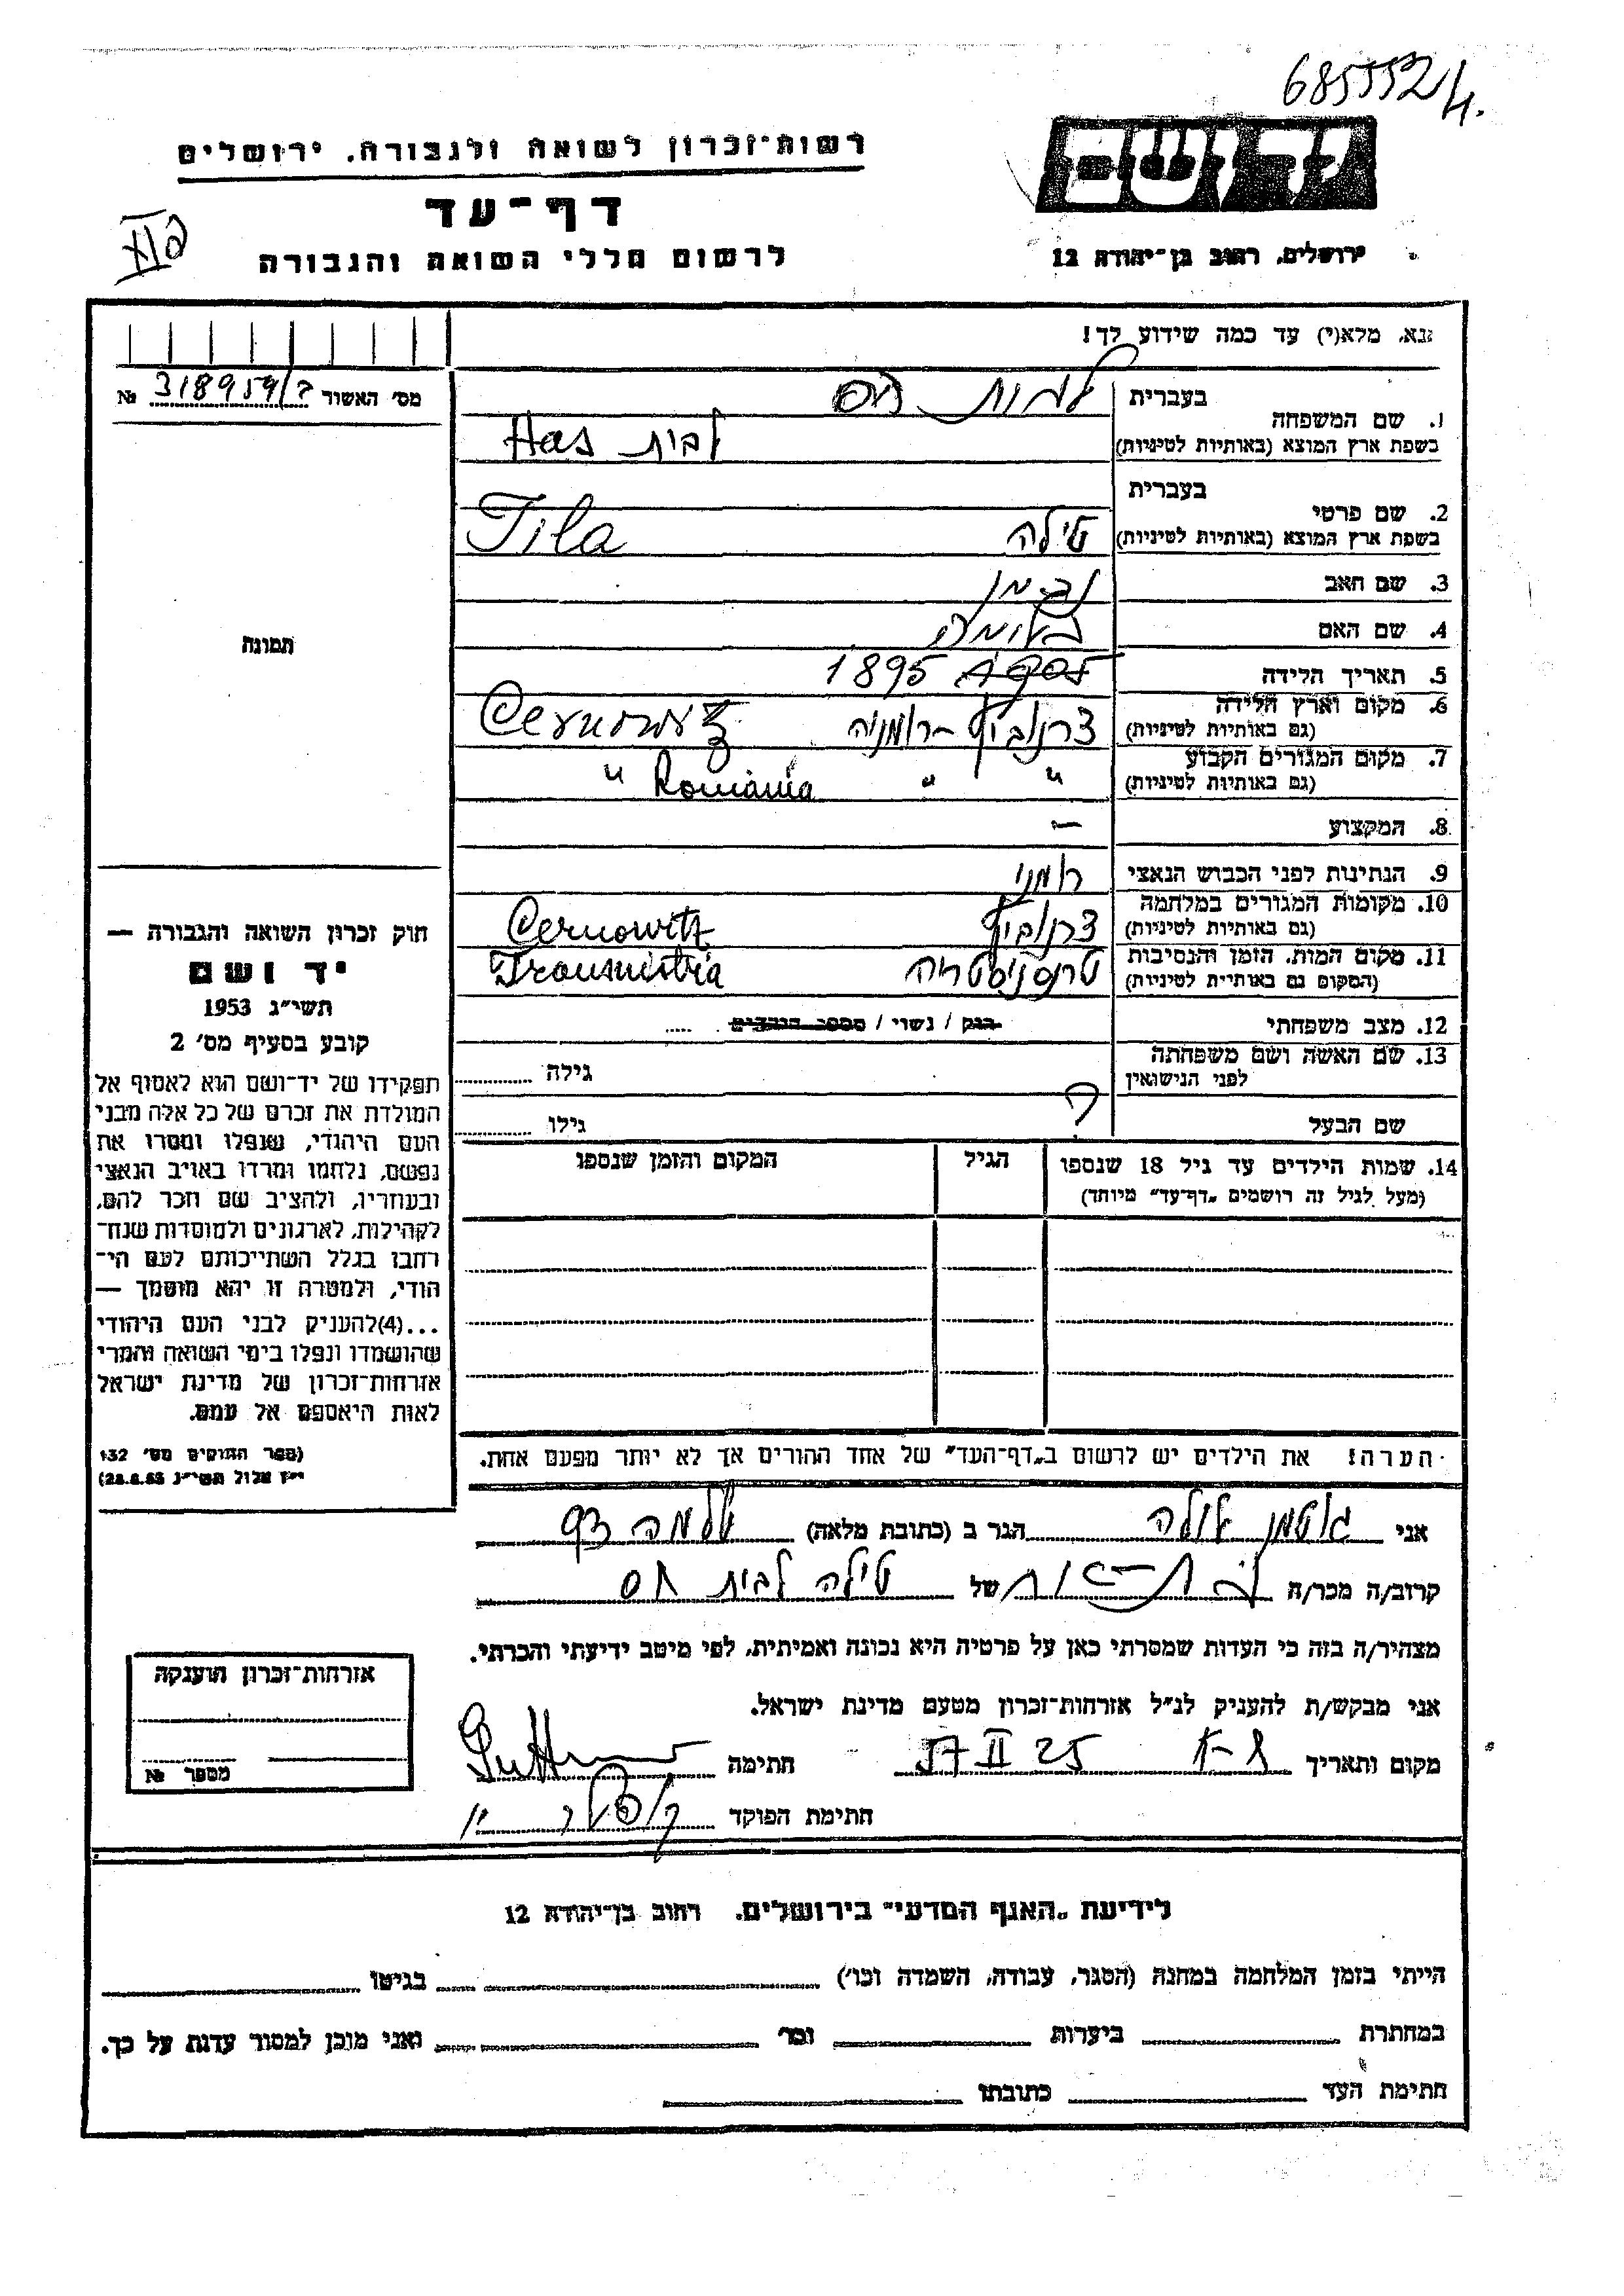 685552/4.
רשות־זכרון לשואה ולגבורה, ירושלים
יד ושם
דף־עד
לרשום חללי השואה והגבורה
ירושלים, רחוב בן־יהודה 12
נא, מלא(י) עד כמה שידוע לך!
מס' האשור 318959/ №
1. שם המשפחה
בעברית
לבית הס
בשפת ארץ המוצא (באותיות לטיניות)
לבית Has
2. שם פרטי
בעברית
בשפת ארץ המוצא (באותיות לטיניות)
טילה Tila
3. שם האב
4. שם האם
5. תאריך הלידה
1895
6. מקום וארץ הלידה
(גם באותיות לטיניות)
צרנוביץ - רומניה Cernowitz
7. מקום המגורים הקבוע
(גם באותיות לטיניות)
" " România "
8. המקצוע
—
9. הנתינות לפני הכבוש הנאצי
רומני
10. מקומות המגורים במלחמה
(גם באותיות לטיניות)
צרנוביץ Cernowitz
11. מקום המות, הזמן והנסיבות
(המקום גם באותיות לטיניות)
טרנסניסטריה Transnistria
12. מצב משפחתי
רווק / נשוי / מספר הילדים .....
13. שם האשה ושם משפחתה
לפני הנישואין
גילה
שם הבעל
?
גילו
14. שמות הילדים עד גיל 18 שנספו
(מעל לגיל זה רושמים „דף־עד" מיוחד)
הגיל
המקום והזמן שנספו
הערה! את הילדים יש לרשום ב„דף־העד" של אחד ההורים אך לא יותר מפעם אחת.
תמונה
חוק זכרון השואה והגבורה —
יד ושם
תשי"ג 1953
קובע בסעיף מס' 2
תפקידו של יד־ושם הוא לאסוף אל
המולדת את זכרם של כל אלה מבני
העם היהודי, שנפלו ומסרו את
נפשם, נלחמו ומרדו באויב הנאצי
ובעוזריו, ולהציב שם וזכר להם,
לקהילות, לארגונים ולמוסדות שנח־
רבו בגלל השתייכותם לעם הי־
הודי, ולמטרה זו יהא מוסמך —
...(4) להעניק לבני העם היהודי
שהושמדו ונפלו בימי השואה והמרי
אזרחות־זכרון של מדינת ישראל
לאות היאספם אל עמם.
(ספר החוקים מס' 132
י"ז אלול תשי"ג 28.8.53)
אני גוטמן אולה הגר ב (כתובת מלאה)
קרוב/ה מכר/ה של טילה לבית הס
מצהיר/ה בזה כי העדות שמסרתי כאן על פרטיה היא נכונה ואמיתית, לפי מיטב ידיעתי והכרתי.
אני מבקש/ת להעניק לנ"ל אזרחות־זכרון מטעם מדינת ישראל.
מקום ותאריך 25 II 57 חתימה
חתימת הפוקד
אזרחות־זכרון הוענקה
מספר №
לידיעת „האגף המדעי" בירושלים, רחוב בן־יהודה 12
הייתי בזמן המלחמה במחנה (הסגר, עבודה, השמדה וכו') בגיטו
במחתרת ביערות וכו' ואני מוכן למסור עדות על כך.
חתימת העד כתובתו